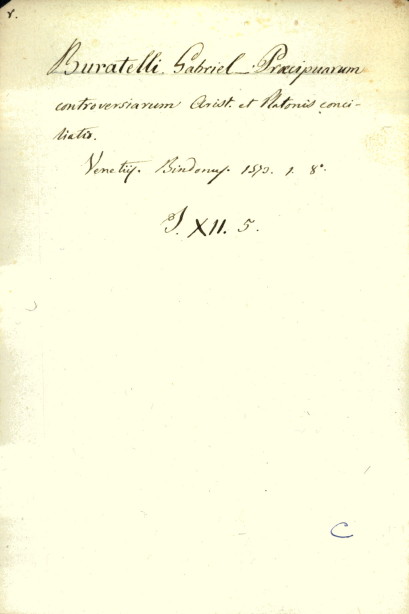 r.
Buratelli. Gabriel – Præcipuarum
controversiarum Arist. et Platonis conci-
liatio.
Venetijs. Bindonus. 1573. 1. 8°.
J. XII. 5.
C